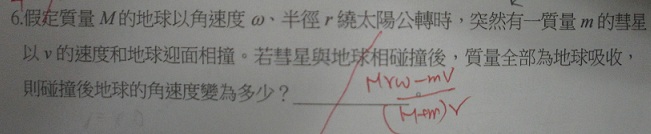 6.假定質量 M 的地球以角速度 ω、半徑 r 繞太陽公轉時，突然有一質量 m 的彗星
以 v 的速度和地球迎面相撞。若彗星與地球相碰撞後，質量全部為地球吸收，
則碰撞後地球的角速度變為多少？
Mrω-mv
(M+m)r